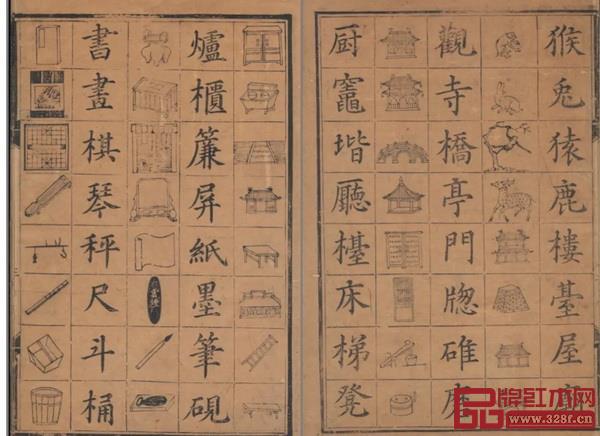 猴兔猿鹿樓臺屋
觀寺橋亭門牕碓磨
厨竈堦廳檯床梯凳
爐櫃簾屏紙墨筆硯
書畫棋琴秤尺斗桶
品牌红木网
www.328f.cn